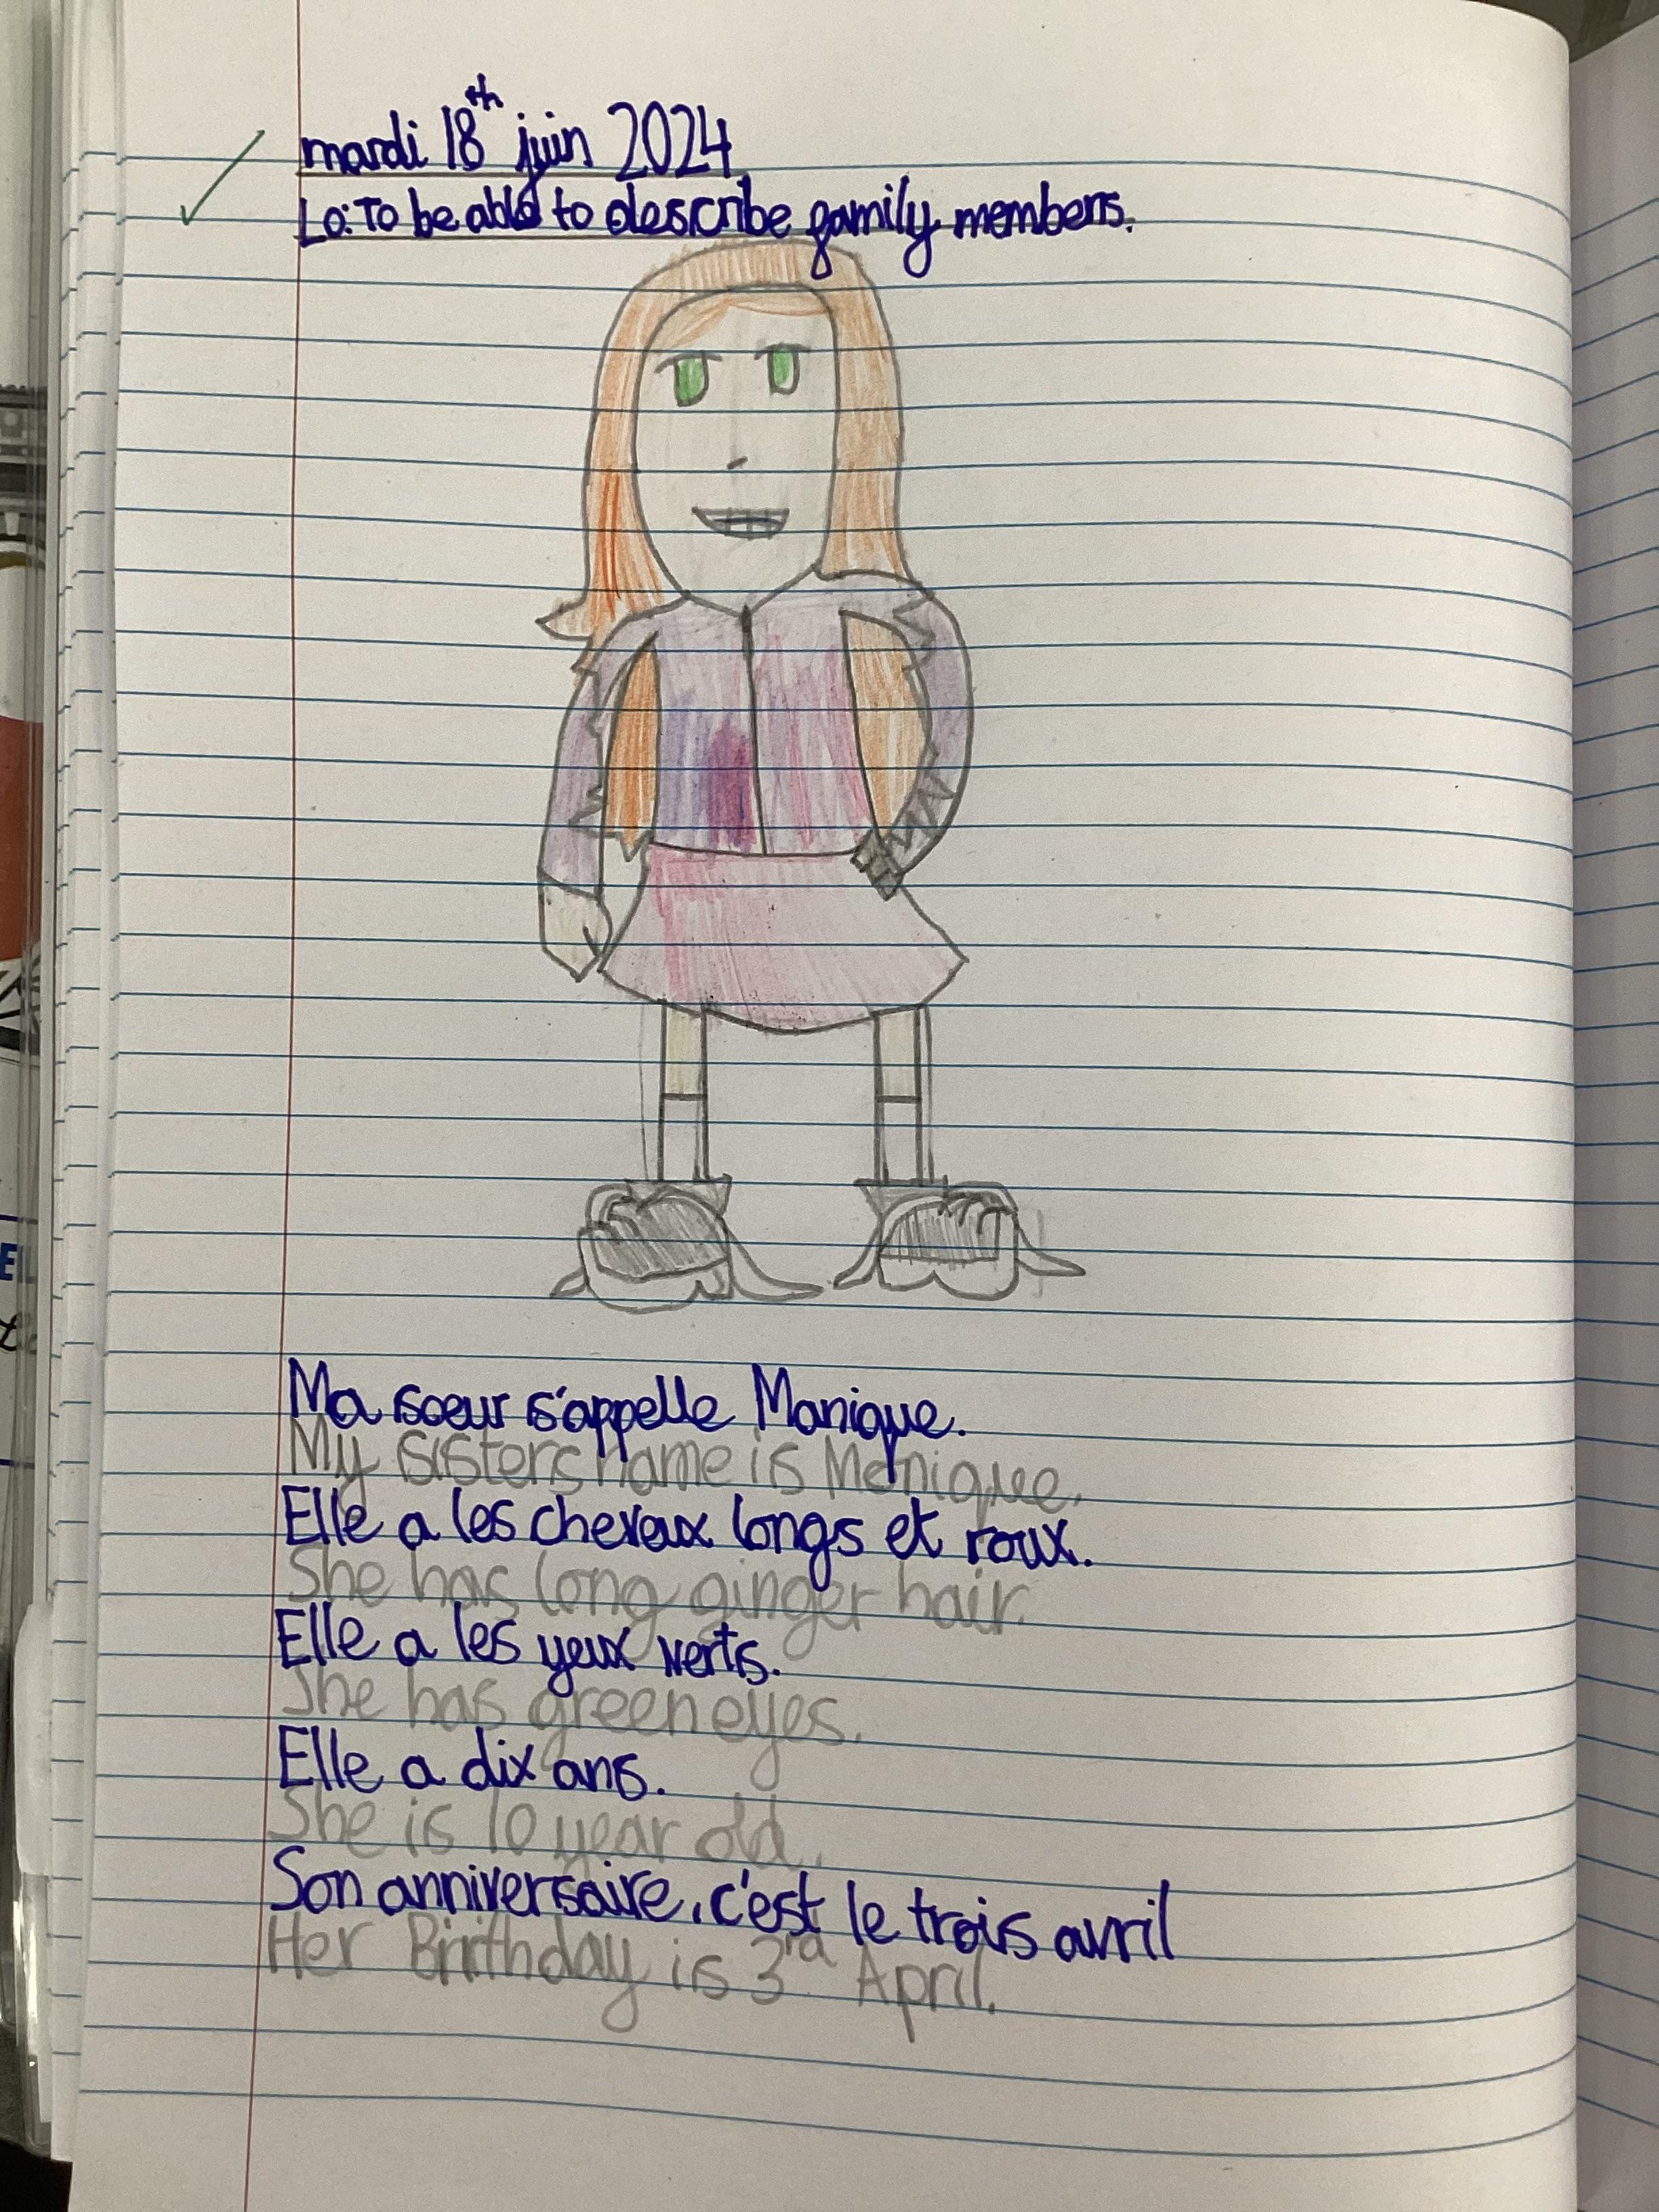 mardi 18th juin 2024
Lo: To be able to describe family members.
Ma soeur s'appelle Manique.
My sisters name is Monique.
Elle a les cheveux longs et roux.
She has long ginger hair.
Elle a les yeux verts.
She has green eyes.
Elle a dix ans.
She is 10 year old.
Son anniversaire, c'est le trois avril
Her Birthday is 3rd April.